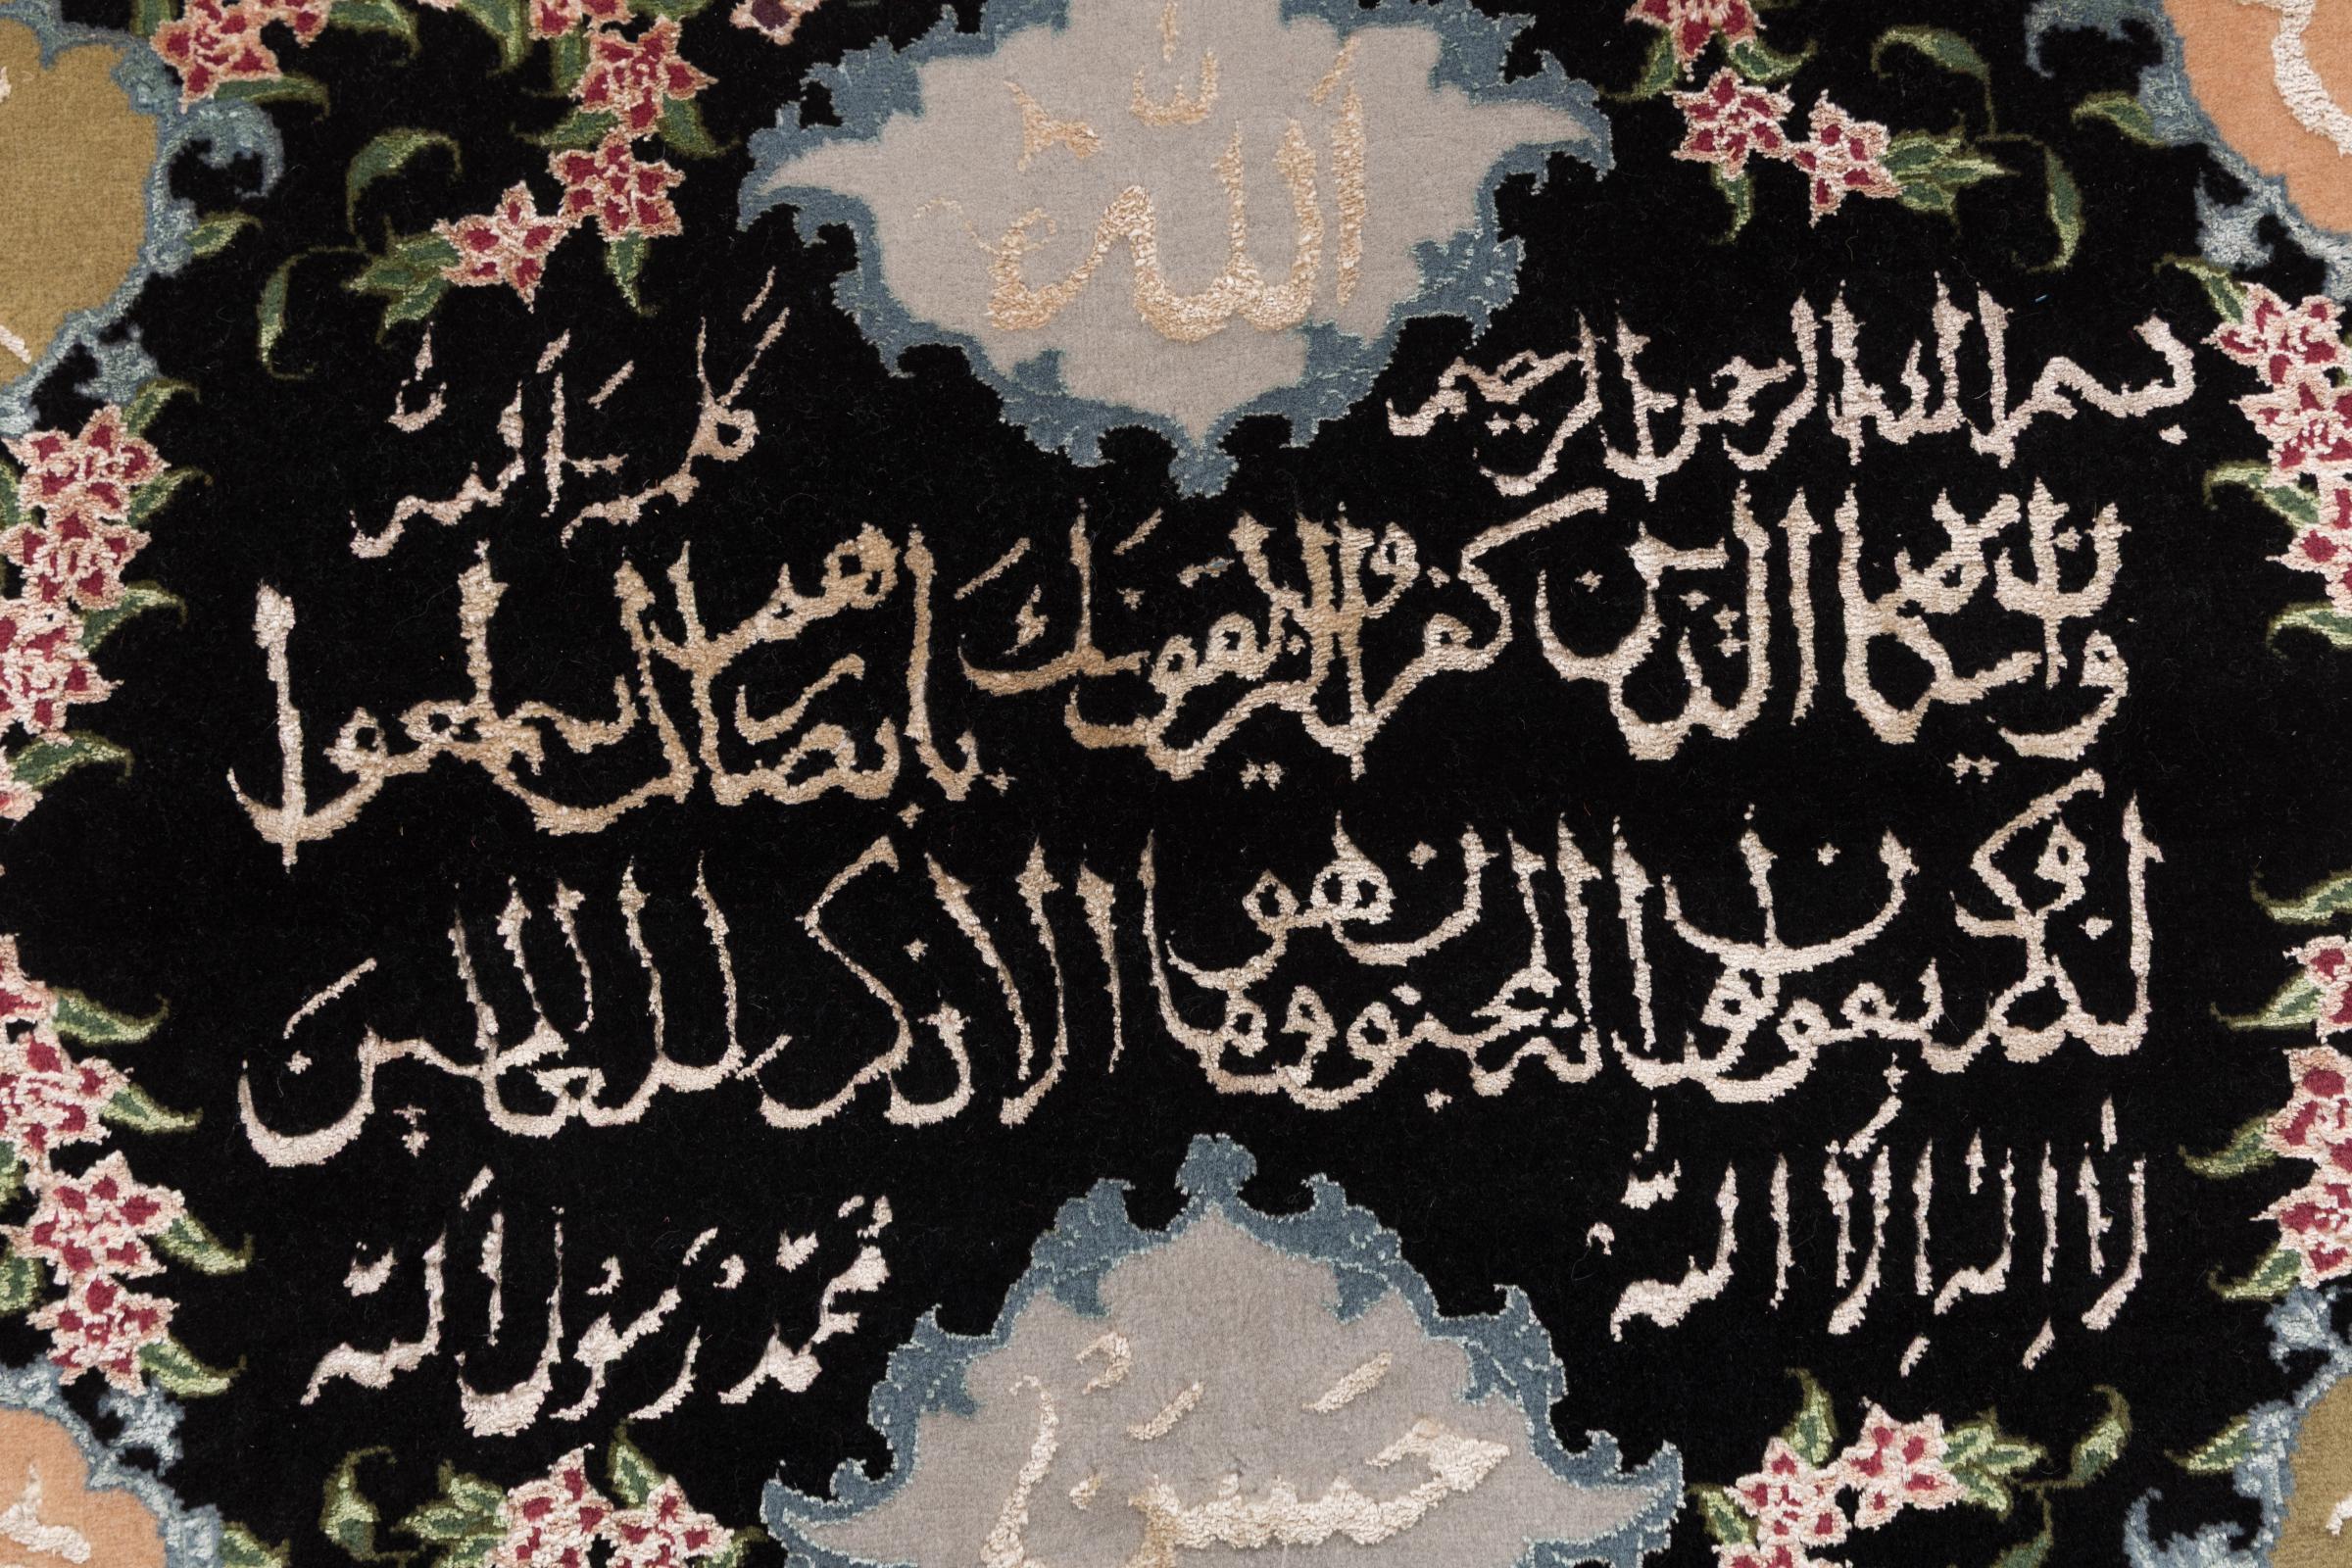 الله
بسم الله الرحمن الرحيم
وان يكاد الذين كفروا ليزلقونك بابصارهم لما سمعوا
الذكر و يقولون انه لمجنون وما هو الا ذكر للعلمين
لا اله الا الله
محمد رسول الله
حسين